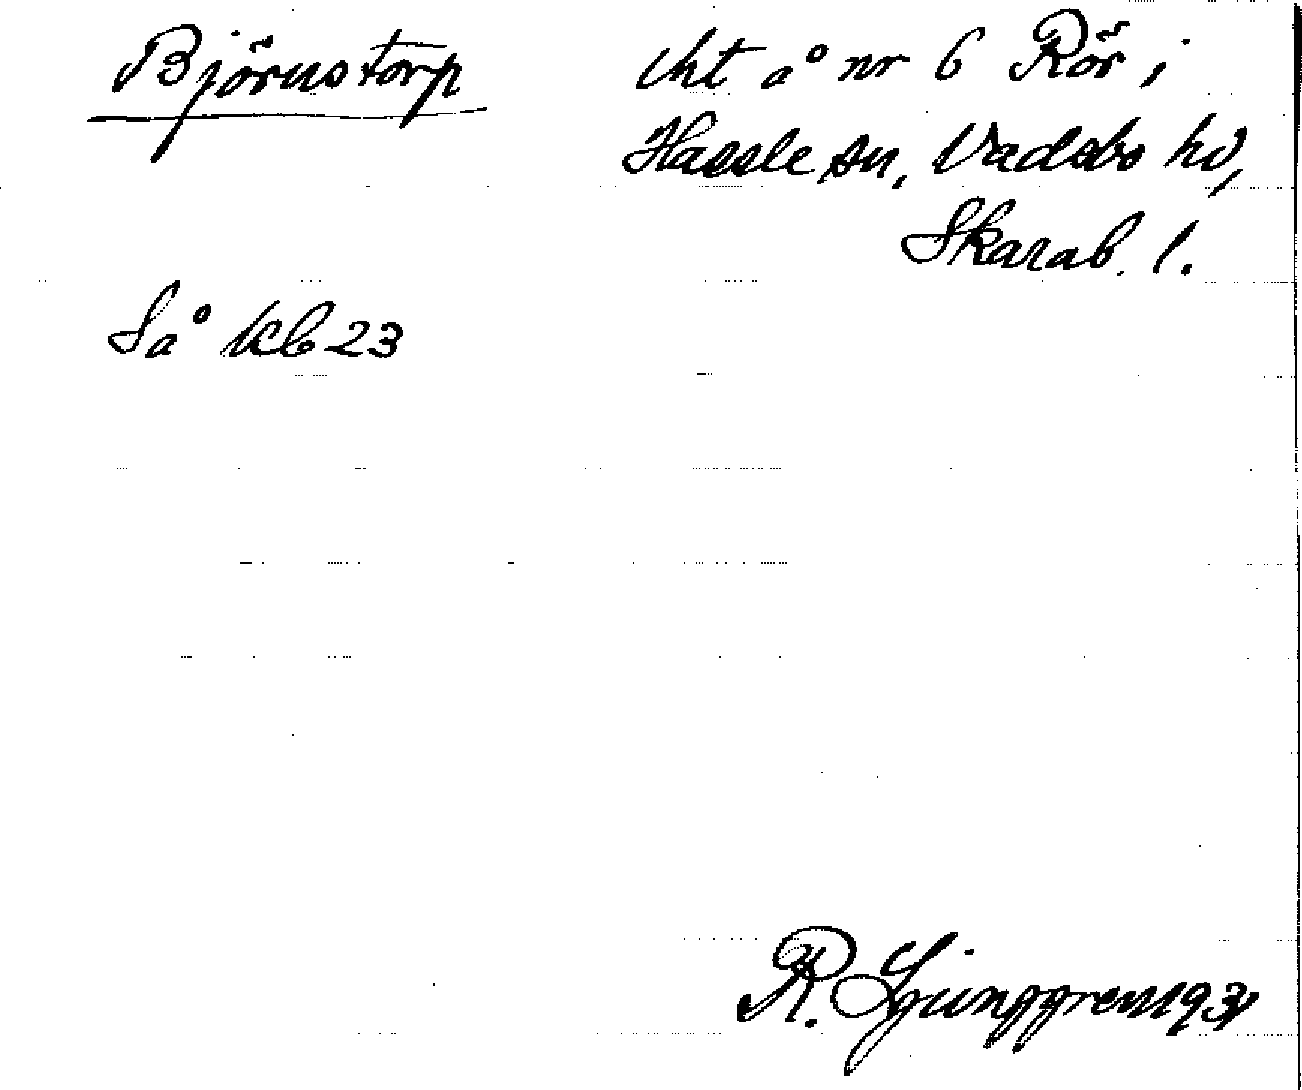 Björnstorp
tht å nr 6 Rör i
Hassle sn, Vadsbo hd,
Skarab. l.
Så kb 23
R. Ljunggren 1931